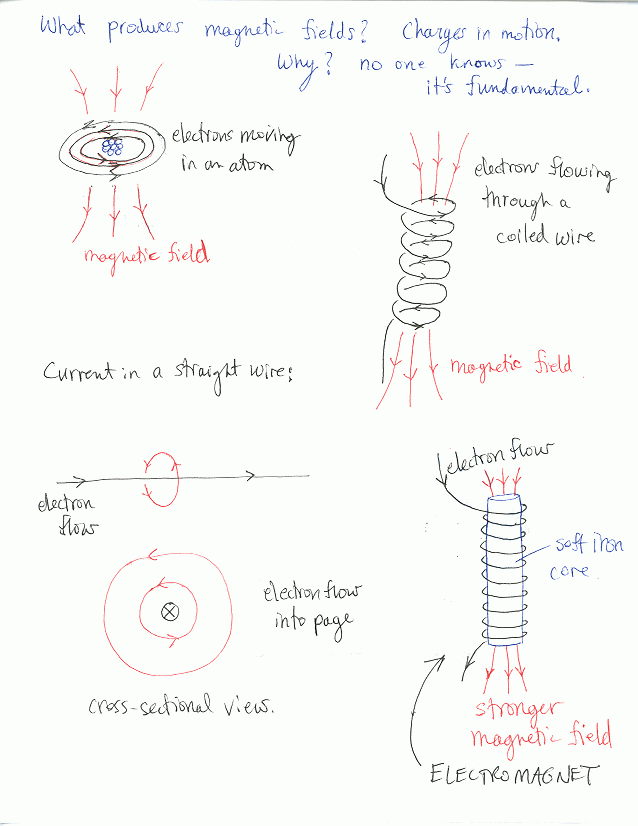 What produces magnetic fields? Charges in motion.
Why? no one knows —
it's fundamental.
electrons moving
in an atom
magnetic field
electrons flowing
through a
coiled wire
magnetic field
Current in a straight wire:
electron
flow
electron flow
into page
cross-sectional view.
electron flow
soft iron
core.
stronger
magnetic field
ELECTROMAGNET